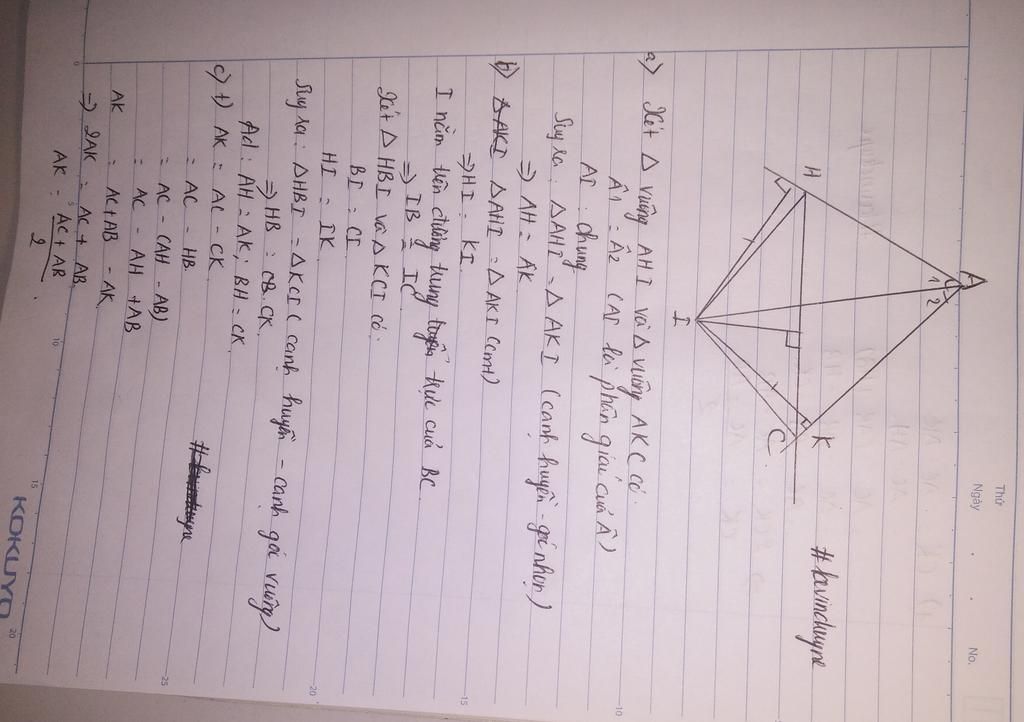 Thứ
Ngày
No.
#kevinduyne
A
1 2
H
K
C
I
a) Xét Δ vuông AHI và Δ vuông AKC có.
Â1 = Â2 (AI là phân giác của Â)
AI: chung
Suy ra: ΔAHI = ΔAKI (cạnh huyền - góc nhọn)
=> AH = AK
b) ΔAHI = ΔAKI (cmt)
=> HI = KI
I nằm trên đường trung trực của BC
=> IB = IC
Xét ΔHBI và ΔKCI có:
BI = CI
HI = IK
Suy ra: ΔHBI = ΔKCI (cạnh huyền - cạnh góc vuông)
=> HB = CK.
c) +) AK = AC - CK
Ad: AH = AK; BH = CK.
= AC - HB
= AC - (AH - AB)
= AC - AH + AB
AK = AC + AB - AK
=> 2AK = AC + AB
AK = AC + AB
2
10
15
20
25
0
10
15
20
KOKUYO